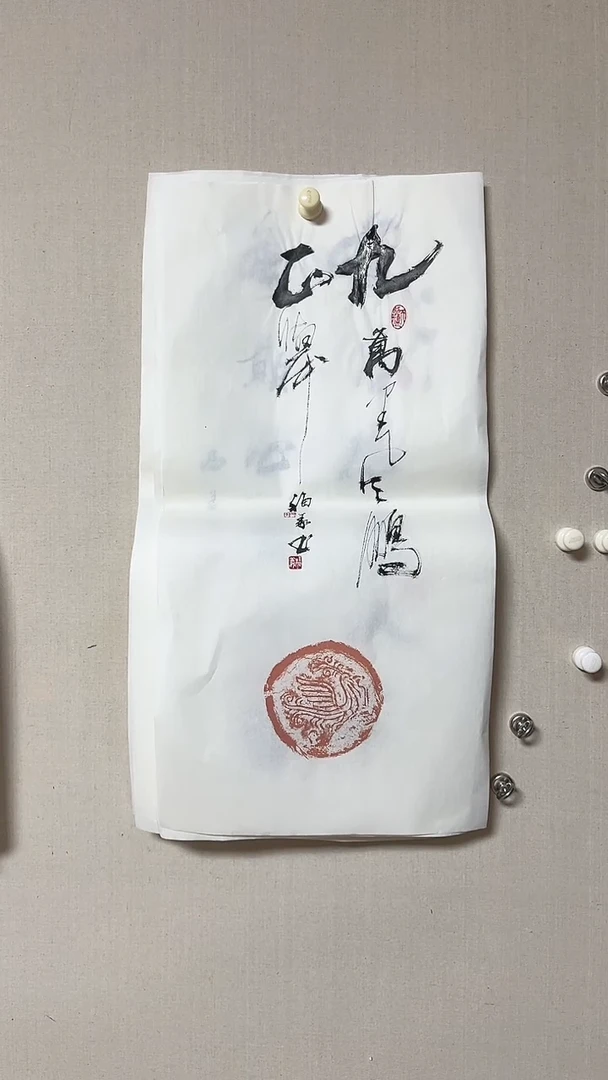 九萬里風鵬
正舉